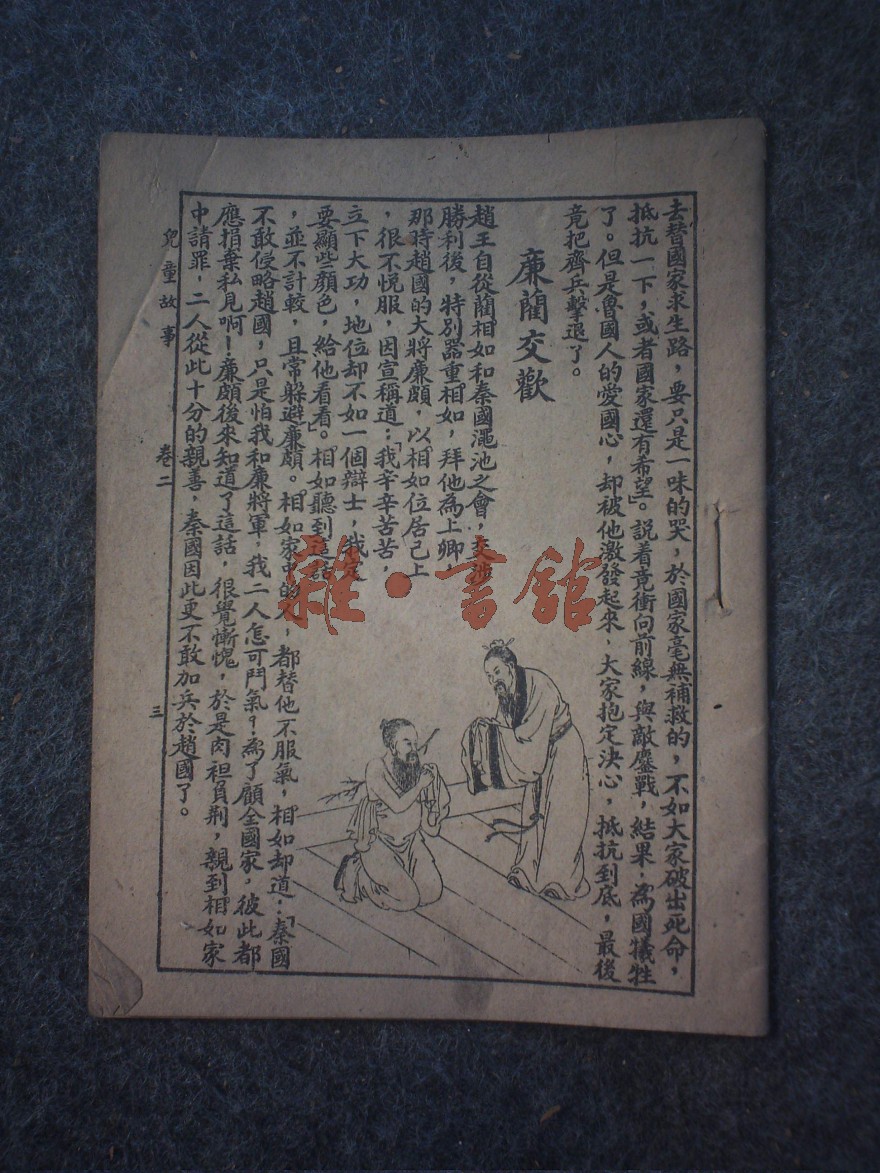 去替國家求生路，要只是一味的哭，於國家毫無補救的，不如大家破出死命，
抵抗一下，或者國家還有希望」。説着竟衝向前線，與敵鏖戰，結果，為國犧牲
了。但是魯國人的愛國心，却被他激發起來，大家抱定決心，抵抗到底，最後
竟把齊兵擊退了。
廉藺交歡
趙王自從藺相如和秦國澠池之會，交涉
勝利後，特別器重相如，拜他為上卿，
那時趙國的大將廉頗，以相如位居己上
，很不悅服，因宣稱道：「我辛辛苦苦，
立下大功，地位却不如一個辯士，我定
要顯些顏色，給他看看」。相如聽到這話
，並不計較，且常躲避廉頗。相如家中的人，都替他不服氣，相如却道：「秦國
不敢侵略趙國，只是怕我和廉將軍，我二人怎可鬥氣？為了顧全國家，彼此都
應捐棄私見啊！廉頗後來知道了這話，很覺慚愧，於是肉袒負荆，親到相如家
中請罪，二人從此十分的親善，秦國因此更不敢加兵於趙國了。
兒童故事　卷二　三
雜·書館